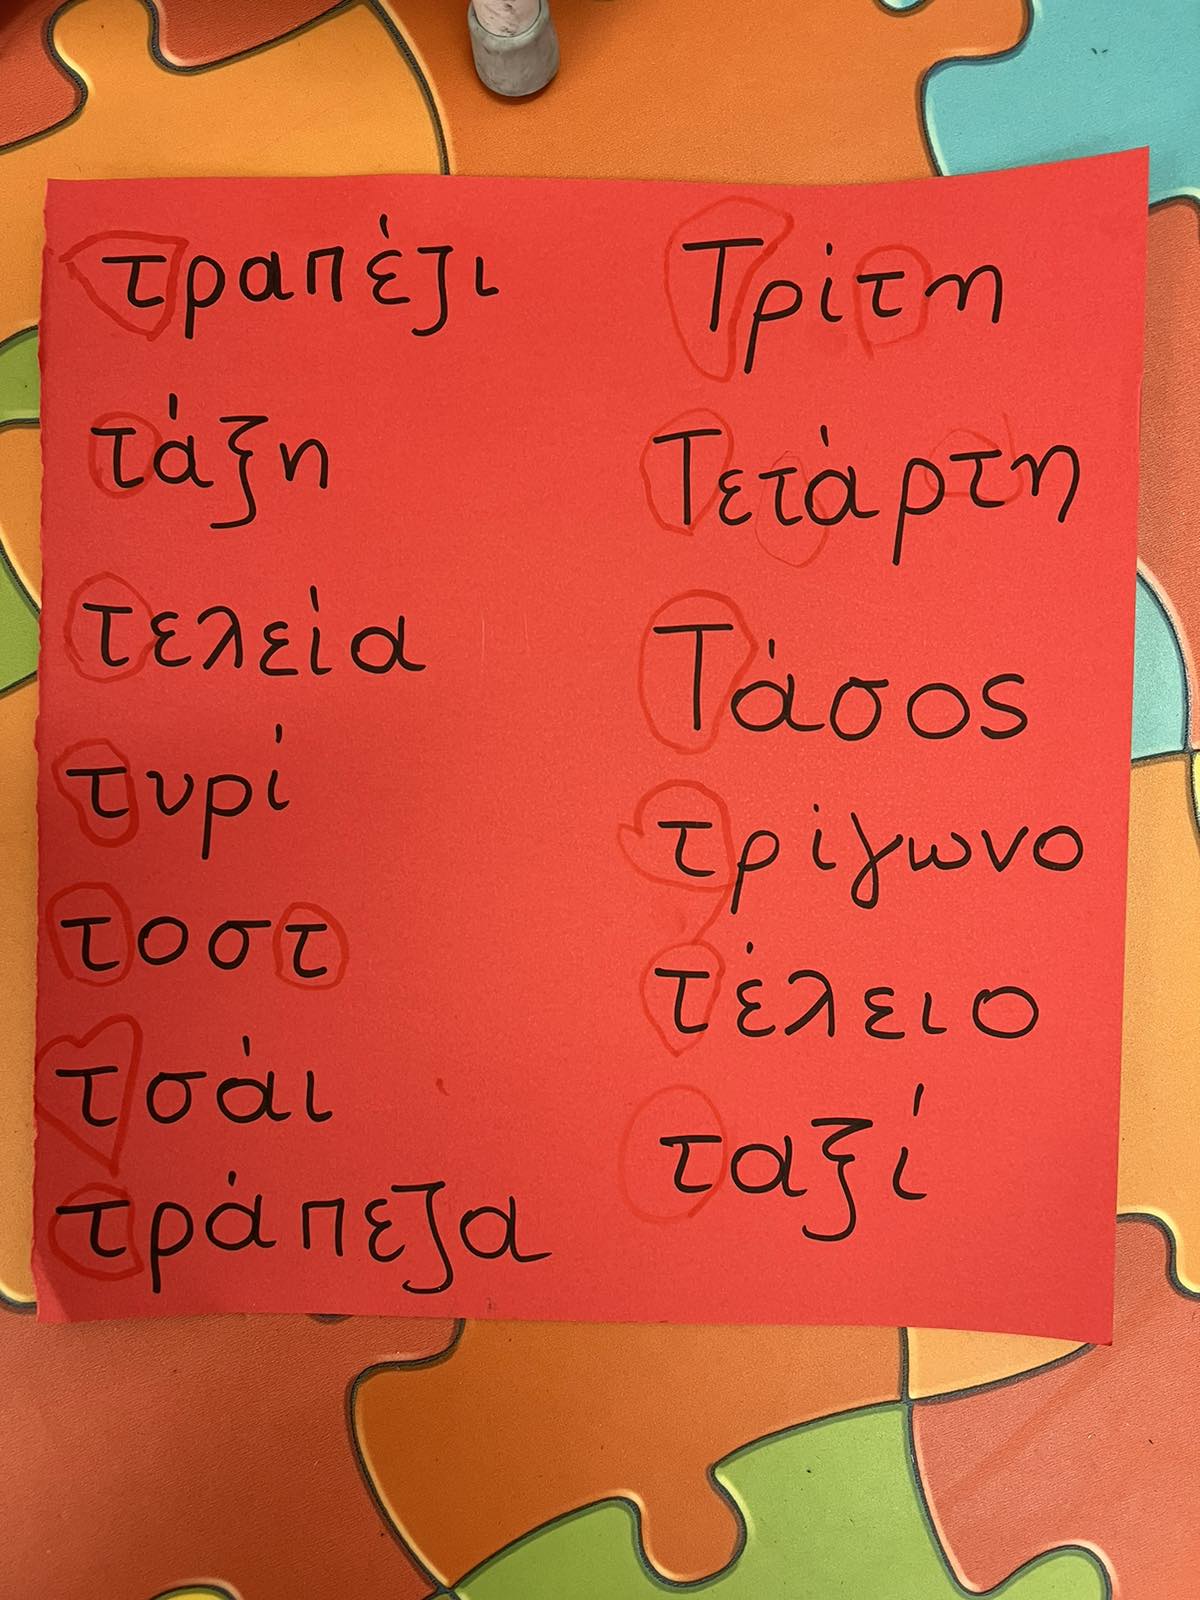 τραπέζι
τάξη
τελεία
τυρί
τοστ
τσάι
τράπεζα
Τρίτη
Τετάρτη
Τάσος
τρίγωνο
τέλειο
ταξί